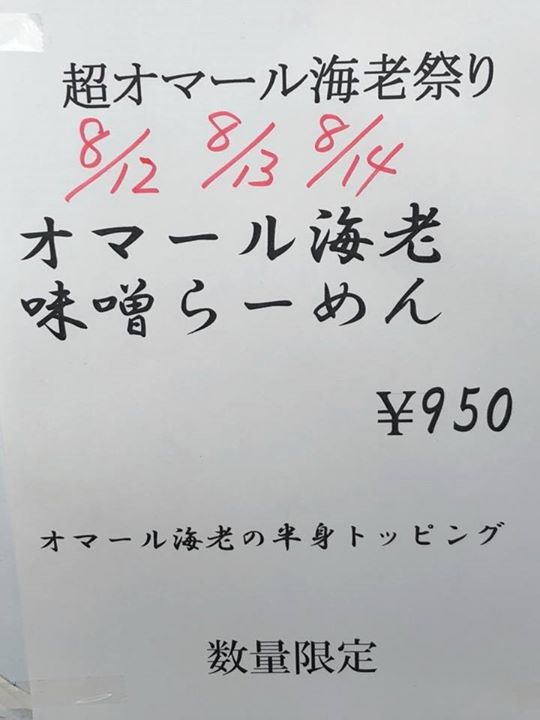 超オマール海老祭り
8/12 8/13 8/14
オマール海老
味噌らーめん
¥950
オマール海老の半身トッピング
数量限定